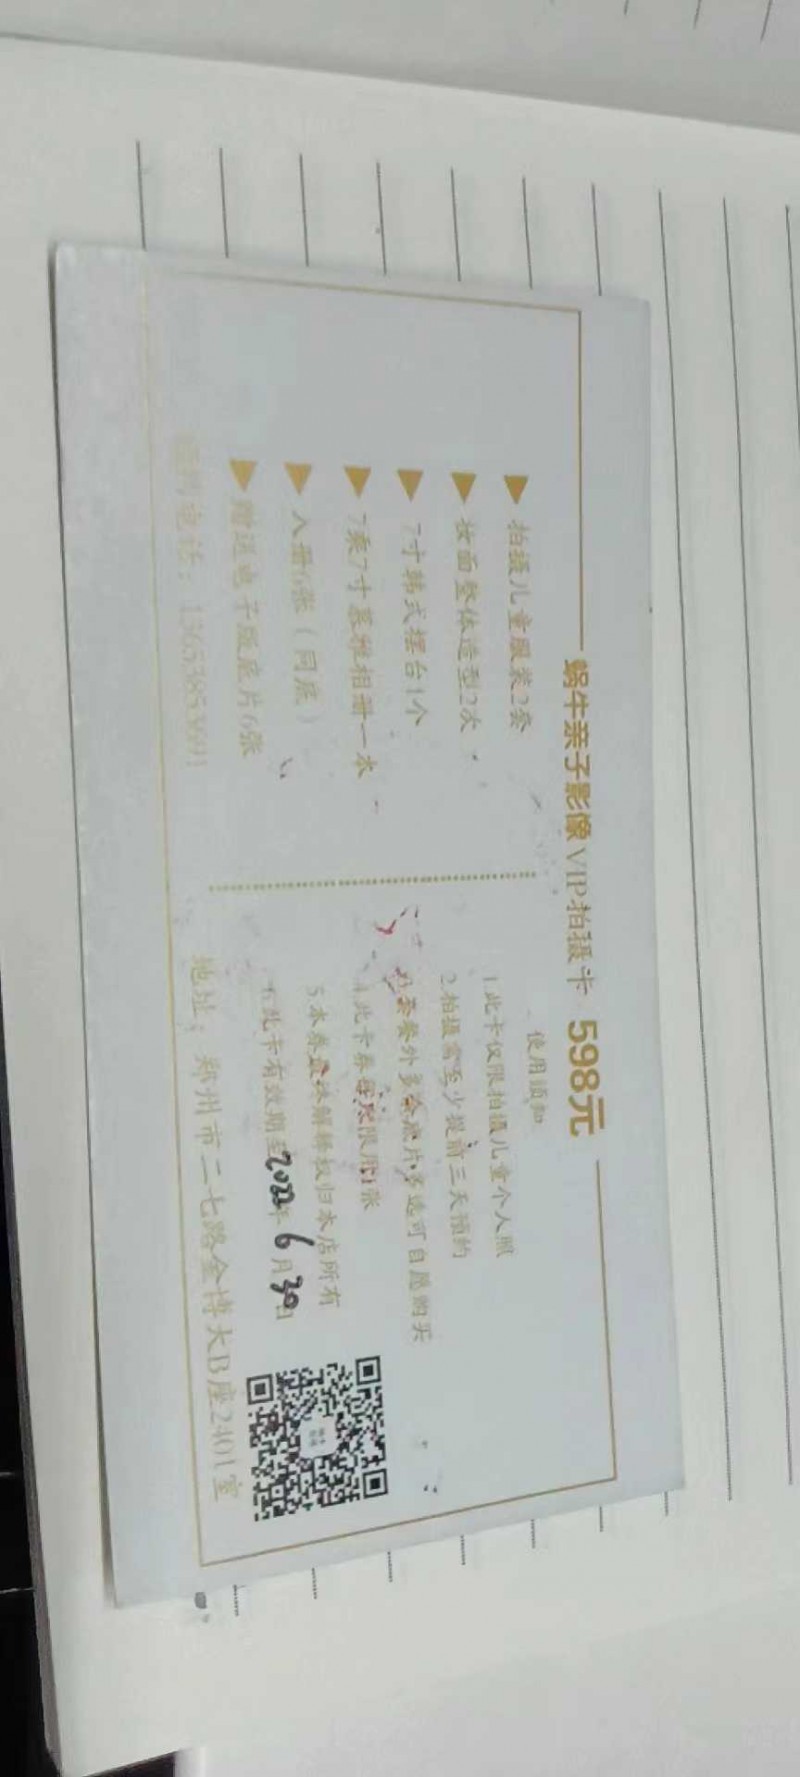 蜗牛亲子影像VIP拍摄卡 598元
拍摄儿童服装2套
妆面整体造型2次
7寸韩式摆台1个
7乘7寸慕雅相册一本
入册6张（同底）
赠送电子版底片6张
电话：13653853691
使用须知
1.此卡仅限拍摄儿童个人照
2.拍摄需至少提前三天预约
套餐外多余底片多选可自愿购买
4.此卡券每家限用1张
5.本券最终解释权归本店所有
6.此卡有效期至2022年6月30日
地址：郑州市二七路金博大B座2401室